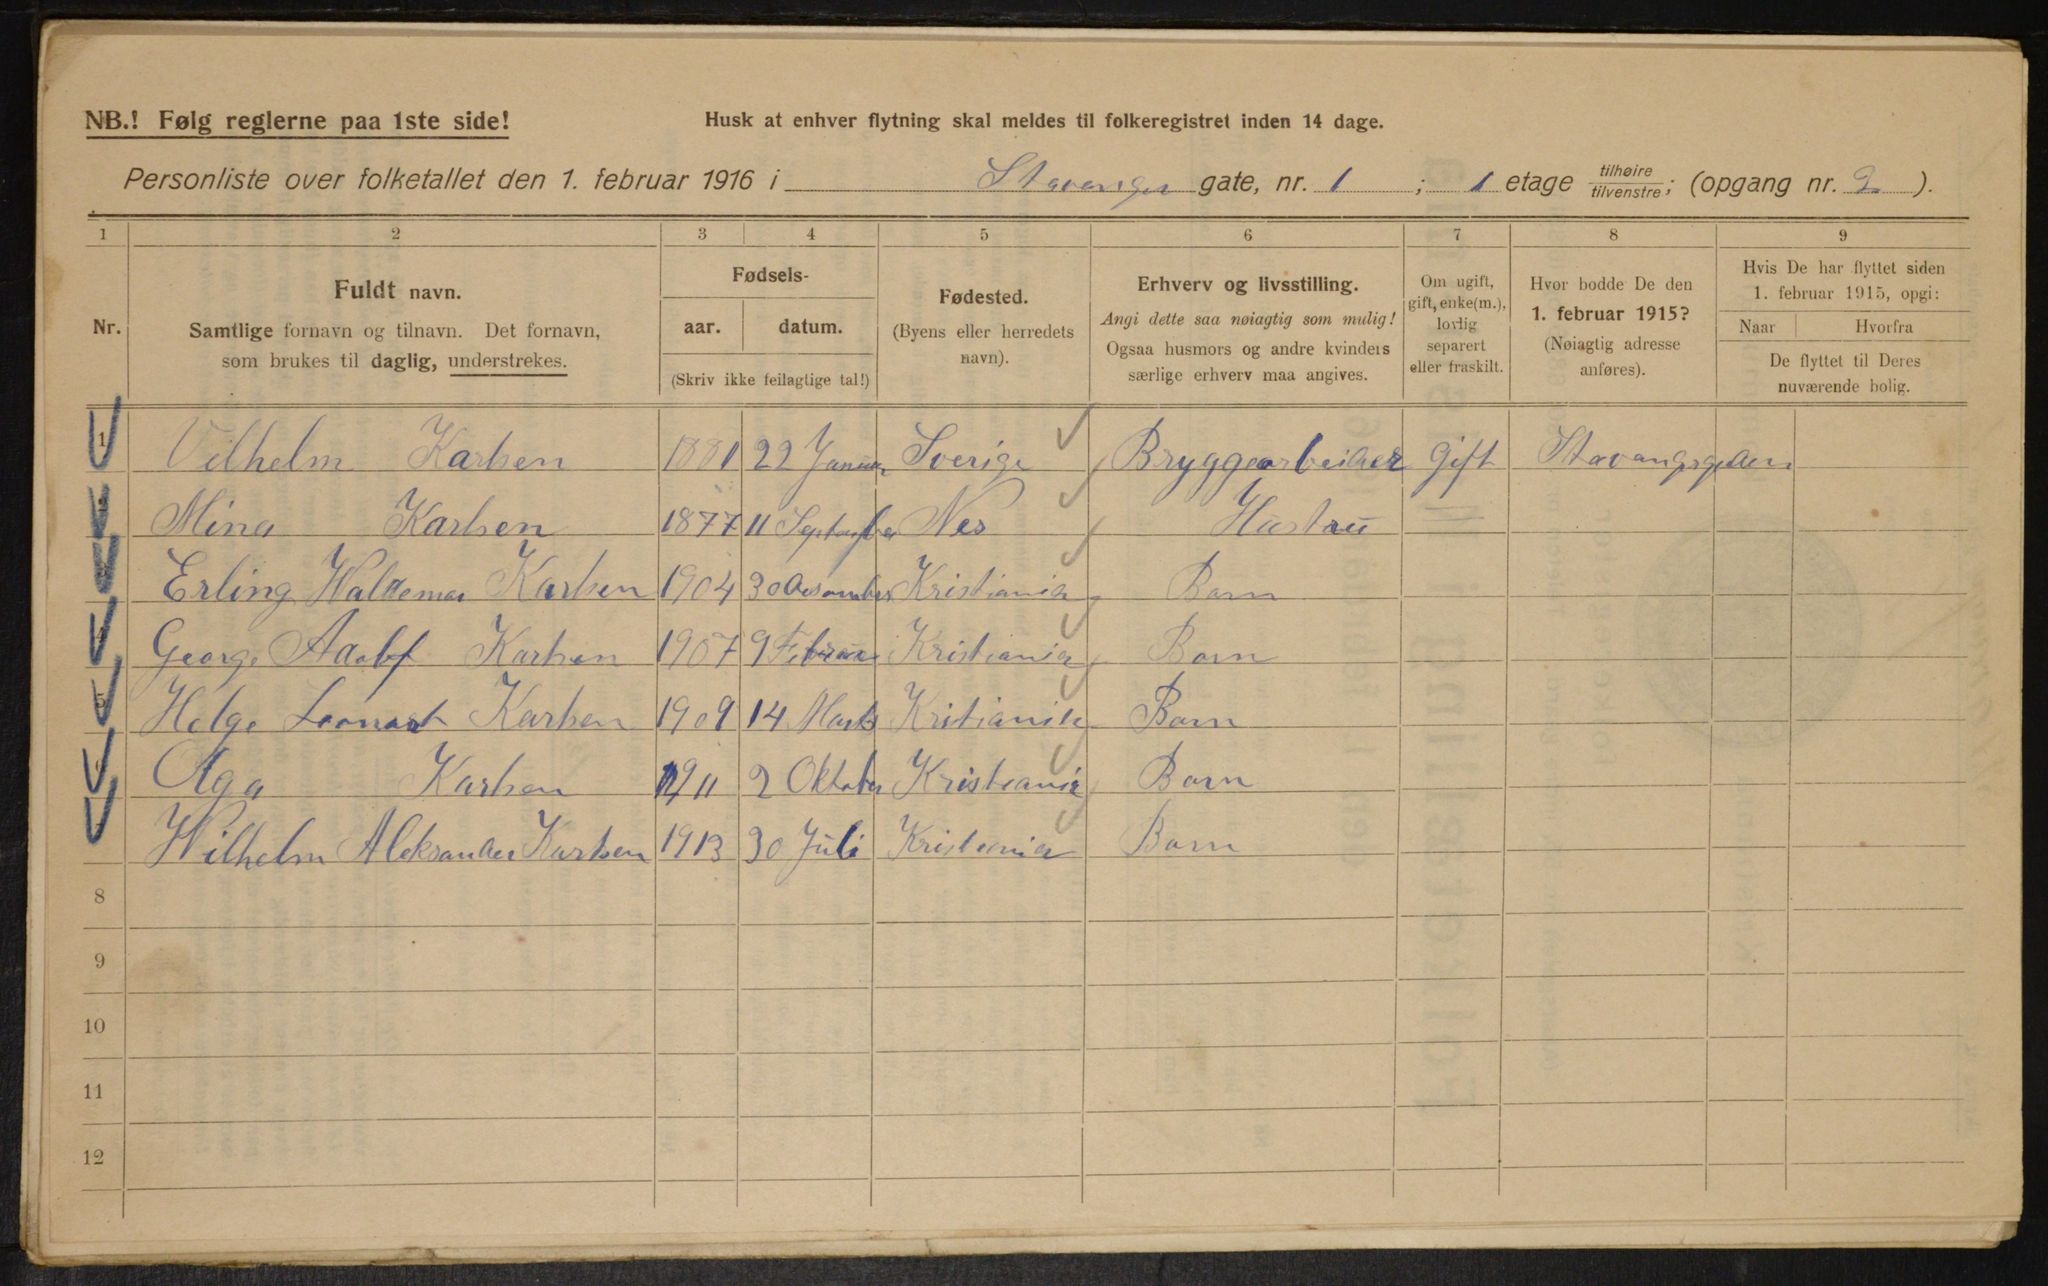 NB.! Følg reglerne paa 1ste side!
Husk at enhver flytning skal meldes til folkeregistret inden 14 dage.
Personliste over folketallet den 1. februar 1916 i Stavanger gate, nr. 1 ; 1 etage tilhøire/tilvenstre; (opgang nr. 2 ).
1 2 3 4 5 6 7 8 9
Nr.
Fuldt navn.
Samtlige fornavn og tilnavn. Det fornavn,
som brukes til daglig, understrekes.
Fødsels-
aar. datum.
(Skriv ikke feilagtige tal!)
Fødested.
(Byens eller herredets
navn).
Erhverv og livsstilling.
Angi dette saa nøiagtig som mulig!
Ogsaa husmors og andre kvinders
særlige erhverv maa angives.
Om ugift,
gift, enke(m.),
lovlig
separert
eller fraskilt.
Hvor bodde De den
1. februar 1915?
(Nøiagtig adresse
anføres).
Hvis De har flyttet siden
1. februar 1915, opgi:
Naar Hvorfra
De flyttet til Deres
nuværende bolig.
1 Vilhelm Karlsen 1881 22 Januar Sverige Bryggearbeider gift
Mina Karlsen 1877 11 September Nes Hustru
Erling Waldemar Karlsen 1904 30 Desember Kristiania Barn
George Adolf Karlsen 1907 9 Februar Kristiania Barn
5 Helge Leonart Karlsen 1909 14 Marts Kritiania Barn
Olga Karlsen 1911 2 Oktober Kristiania Barn
Wilhelm Aleksander Karlsen 1913 30 Juli Kristiania Barn
8
9
10
11
12